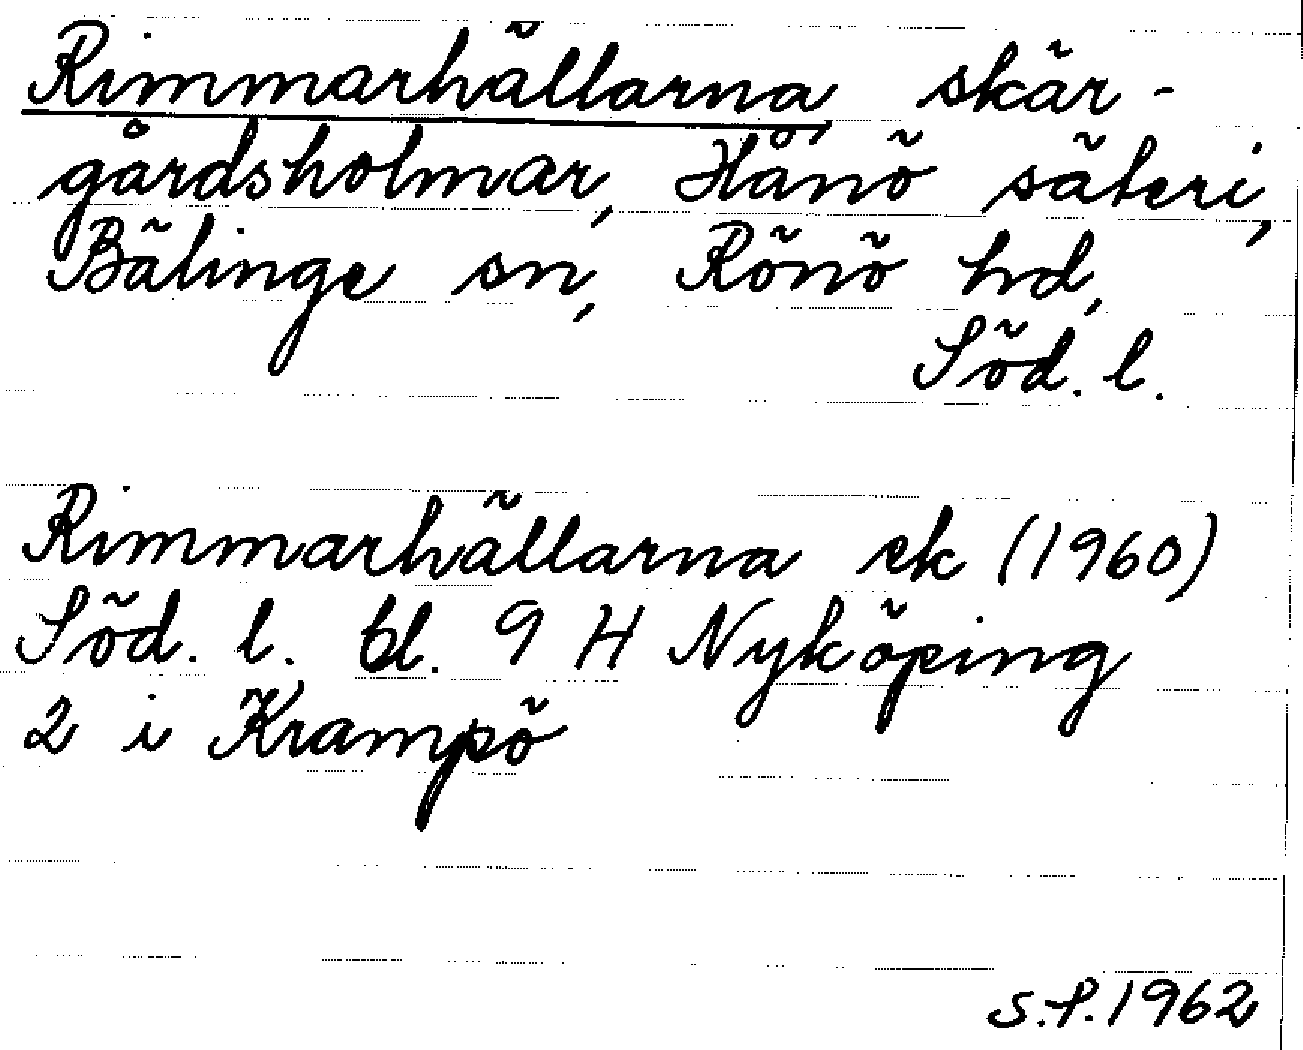 Rimmarhällarna, skär-
gårdsholmar, Hånö säteri,
Bälinge sn, Rönö hd,
Söd. l.
Rimmarhällarna ek (1960)
Söd. l. bl. 9 H Nyköping
2 i Krampö
S.P. 1962